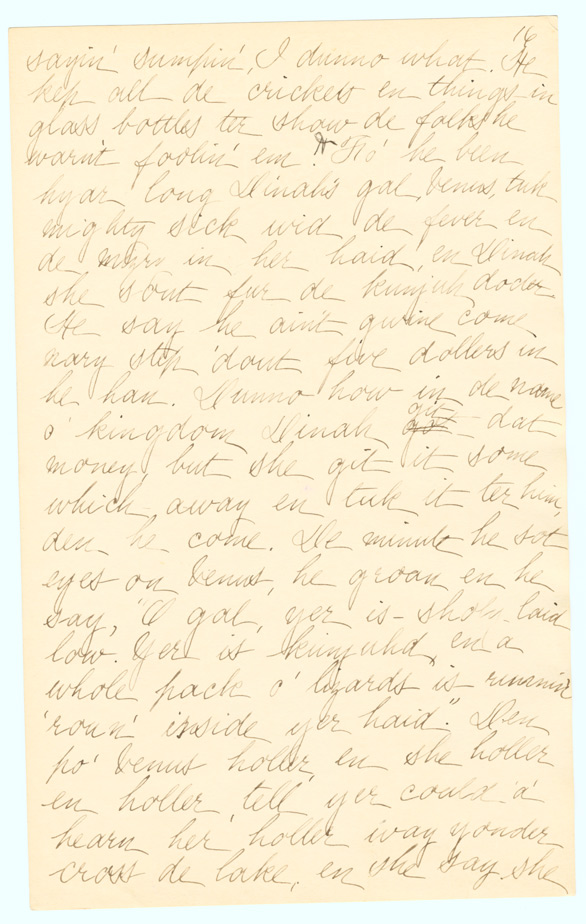 16
sayin' sumpin', I dunno what. He
kep all de crickets en things in
glass bottles ter show de folks he
warn't foolin' em. Fo' he bien
hyar long Dinah's gal, Venus, tuk
mighty sick wid de fever en
de mizry in her haid, en Dinah
she sont fur de kunjuh doctor.
He say he ain't gwine come
nary step 'dout five dollers in
he han. Dunno how in de name
o' kingdom Dinah git dat
money, but she git it some
which away en tuk it ter him,
den he come. De minute he sot
eyes on Venus, he groan en he
say, "O gal, yer is sholy laid
low. Yer is kunjuhd, en a
whole pack o' lizards is runnin'
'roun' inside yer haid." Den
po' Venus holler, en she holler
en holler, tell yer could 'a'
hearn her holler way yonder
cross de lake, en she say she